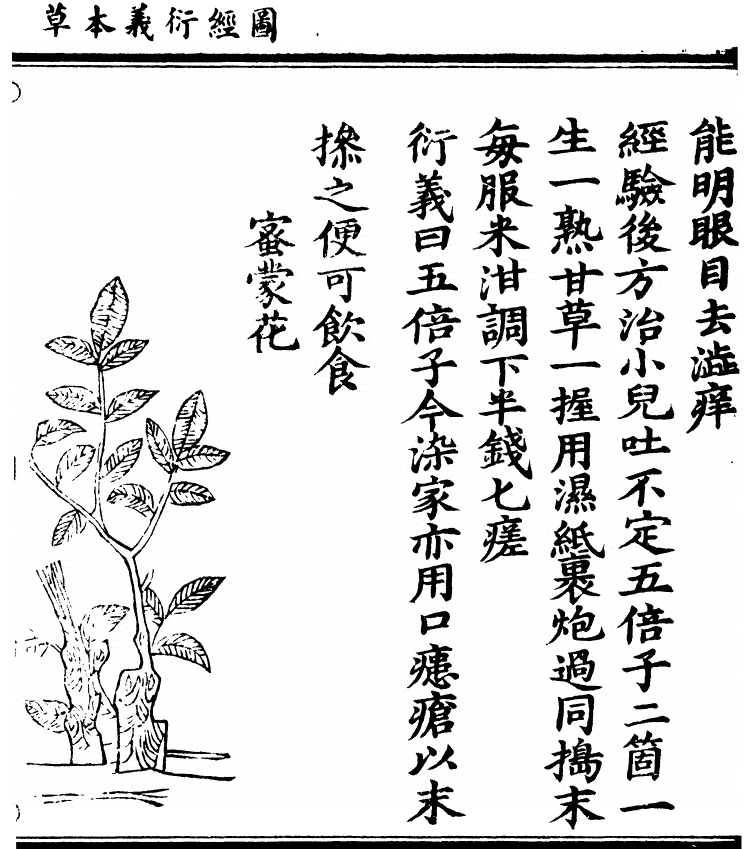 圖經衍義本草
能明眼目去澁痒
經驗後方治小兒吐不定五倍子二箇一
生一熟甘草一握用濕紙裹炮過同搗末
每服米泔調下半錢七瘥
衍義曰五倍子今染家亦用口瘜瘡以末
摻之便可飲食
蜜蒙花